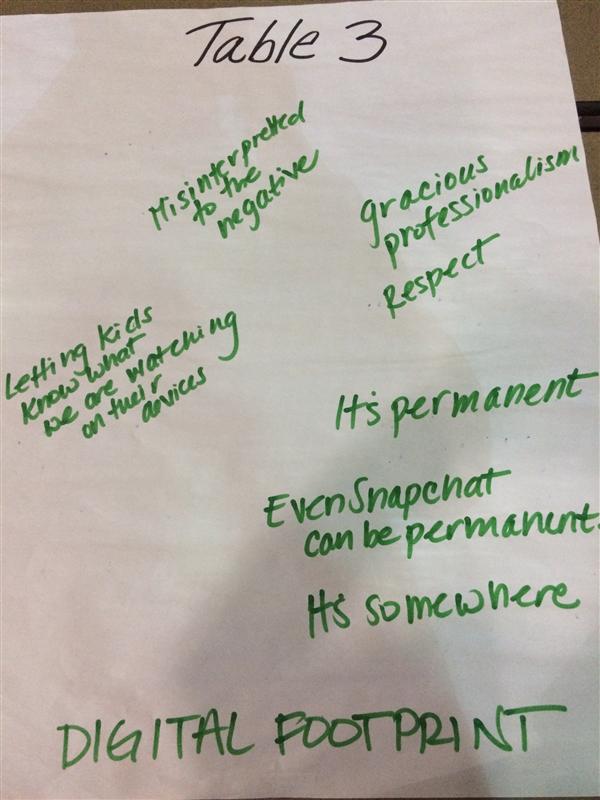 Table 3
Misinterpretted
to the
negative
gracious
professionalism
Respect
Letting kids
know what
we are watching
on their
devices
It's permanent
Even Snapchat
can be permanent.
It's somewhere
DIGITAL FOOTPRINT